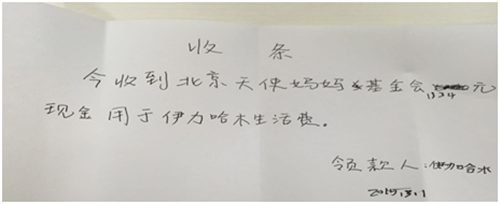 收条
今收到北京天使妈妈基金会1324元
现金用于伊力哈木生活费。
领款人:伊力哈木